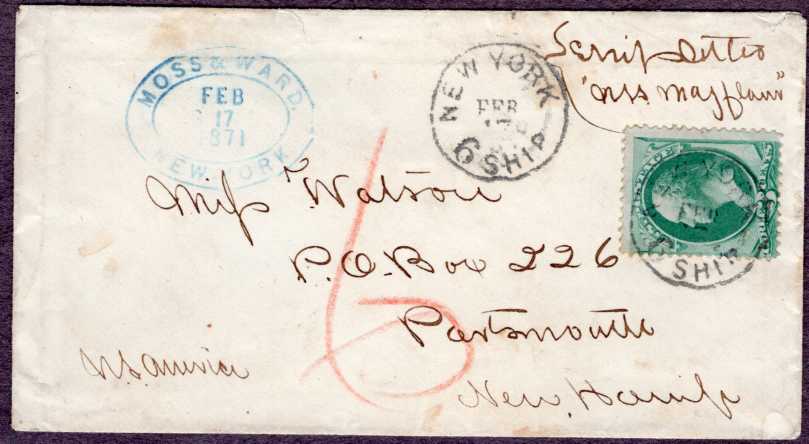 MOSS & WARD.
FEB
17
1871
NEW YORK
NEW YORK
FEB
17
6 SHIP
"U.S.S. Mayflower"
Miss Watson
P.O. Box 226
Portsmouth
New Hamp
U.S. America
6
FEB
SHIP